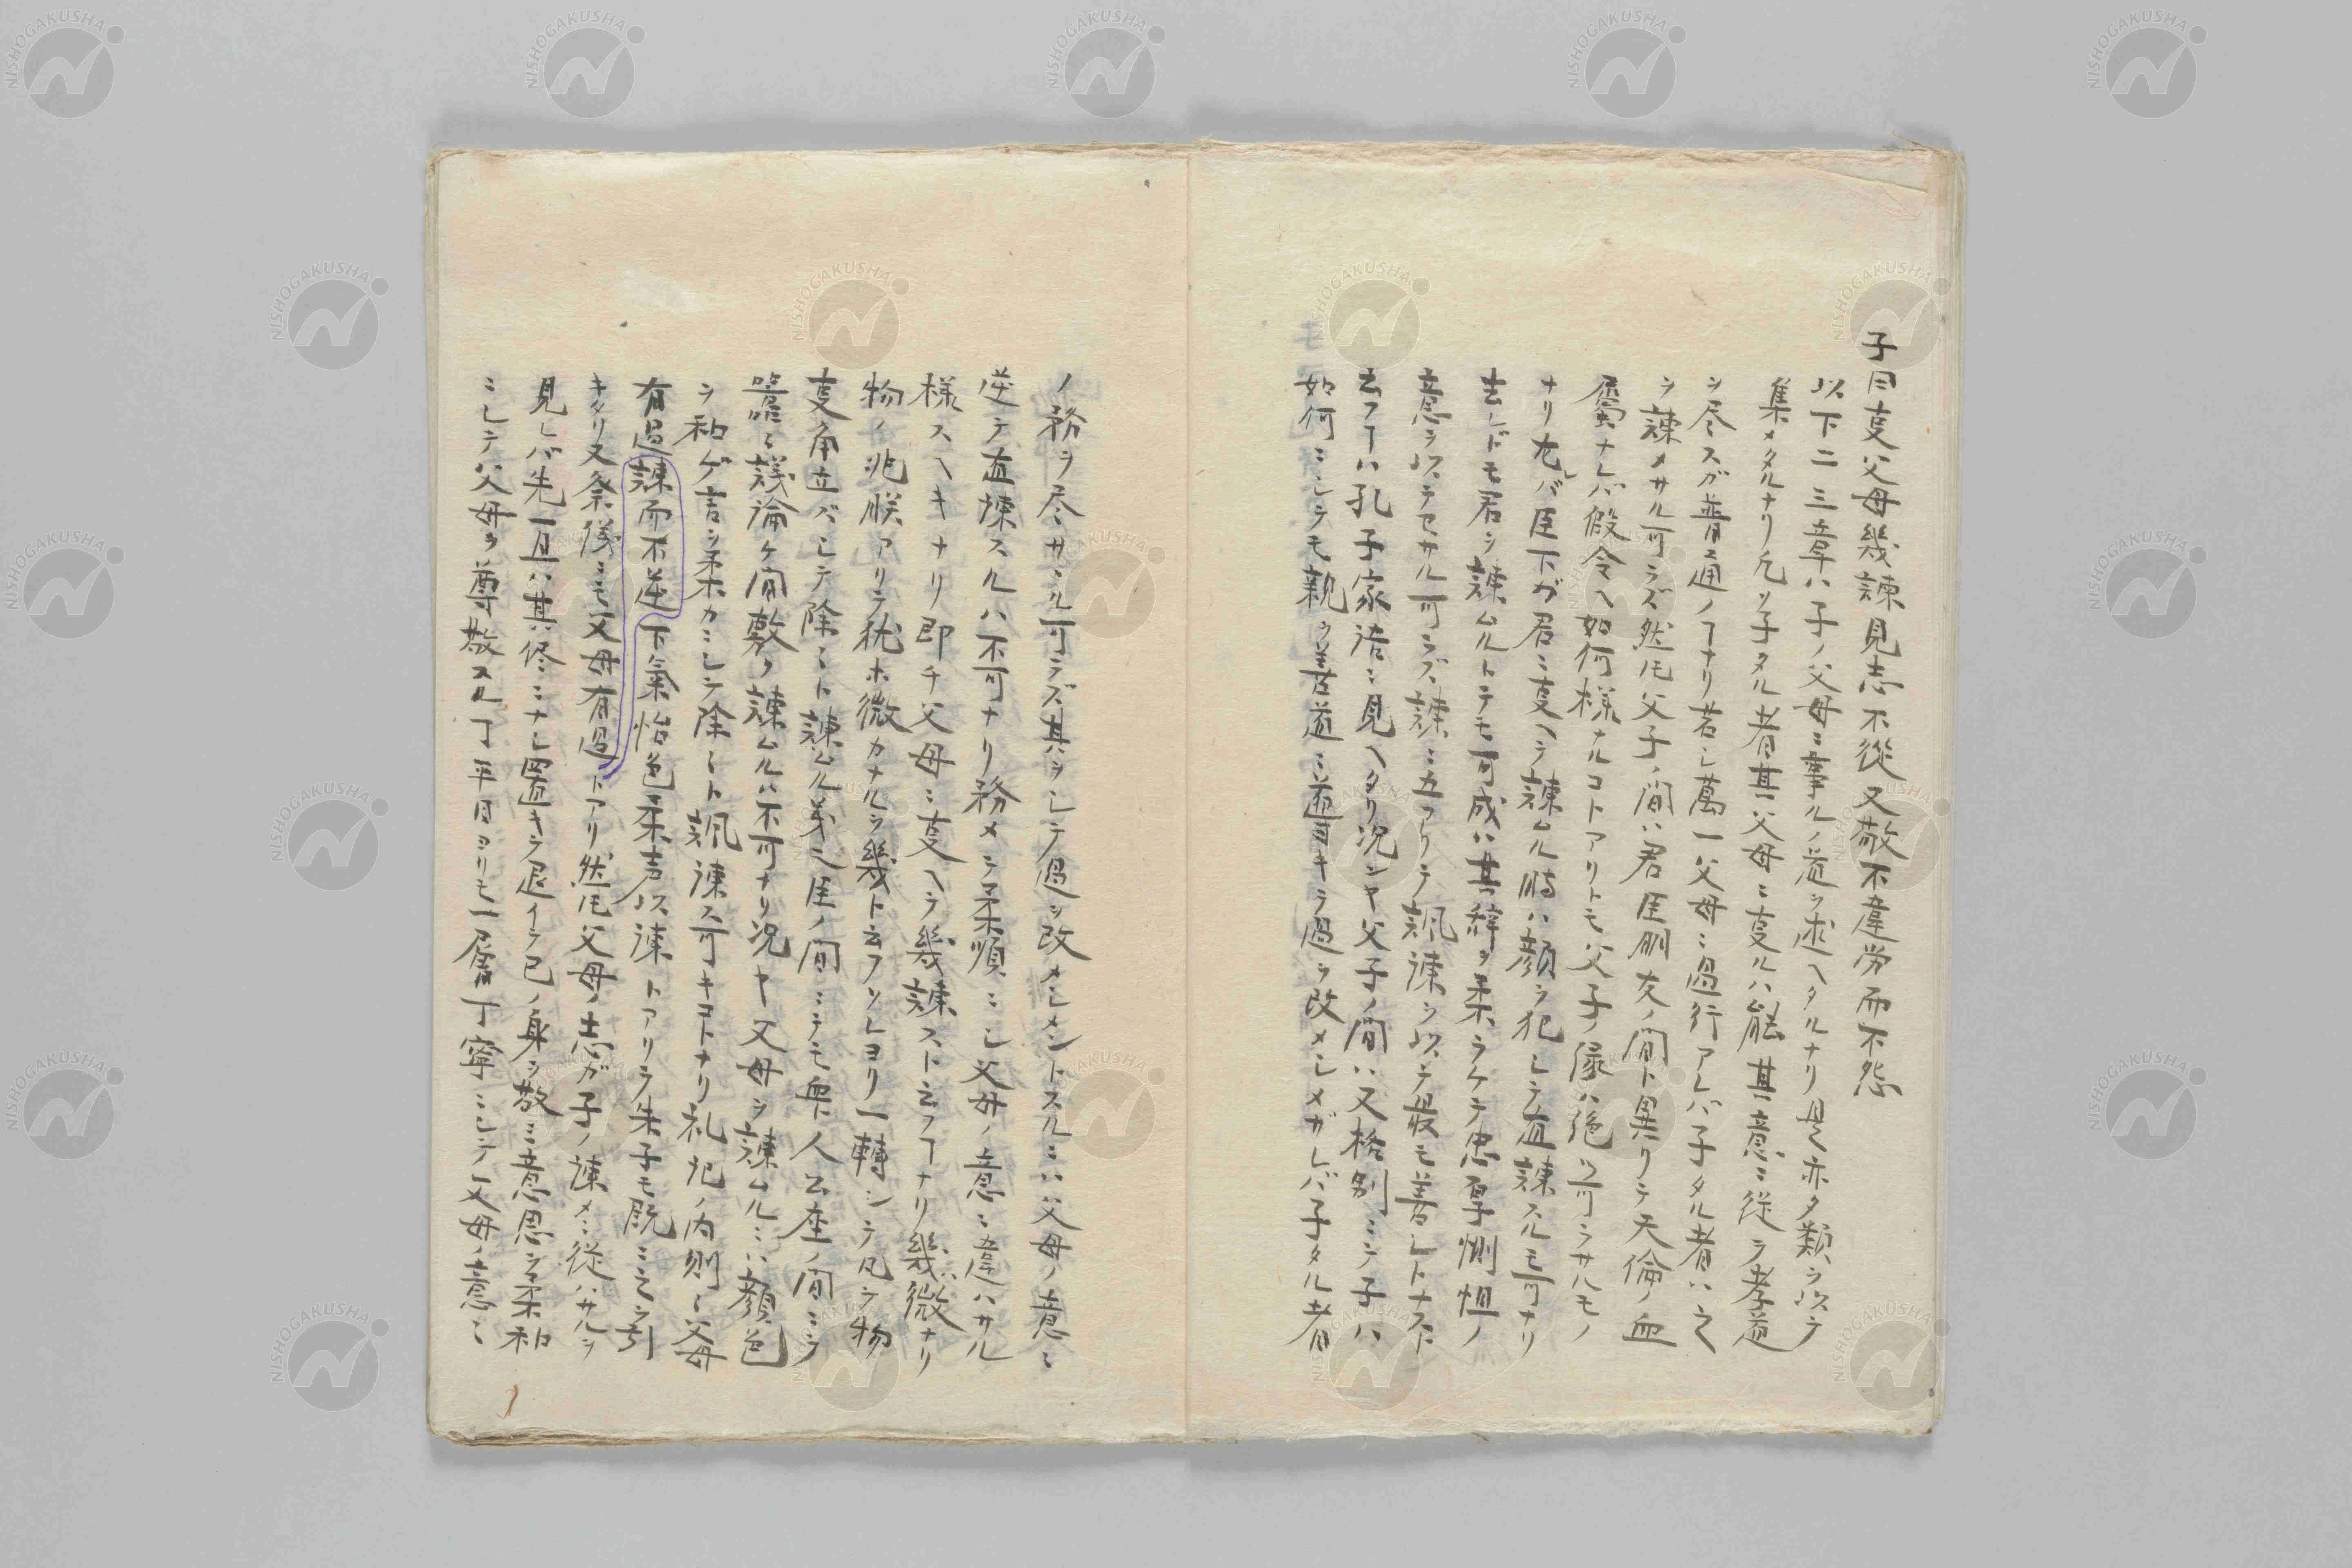 子曰事父母幾諫見志不從又敬不違労而不怨
以下二三章ハ子ノ父母ニ事ルノ道ヲ述ヘタルナリ是亦タ類ヲ以テ
集メタルナリ凡ソ子タル者其父母ニ事ルハ能其意ニ従ヲ孝道
ヲ尽スガ普通ノヿナリ若シ萬一父母ニ過行アレバ子タル者ハ之
ヲ諫メサル可ラズ然𪜈父子ノ間ハ君臣朋友ノ間ト異リテ天倫ノ血
属ナレバ假令ヘ如何様ナルコトアリトモ父子ノ縁ハ絶ツ可ラサルモノ
ナリ九レバ臣下ガ君ニ事ヘテ諫ムル時ハ顔ヲ犯シテ直諫スルモ可ナリ
去レドモ君ヲ諫ムルトテモ可成ハ其辞ヲ柔ラケテ忠厚惻怛ノ
意ヲ以テセサル可ラズ諫ニ五アリテ諷諫ヲ以テ最モ善シトナスト
云フヿハ孔子家语ニ見ヘタリ况ンヤ父子ノ間ハ又格別ニテ子ハ
如何ニシテモ親ヲ善道ニ遵キテ過ヲ改メシメガレバ子タル者
ノ務ヲ尽サヾル可ラズ其ヲシテ過ヲ改メシメントスルニハ父母ノ意ニ
逆テ直諫スルハ不可ナリ務メテ柔順ニシ父母ノ意ニ違ハサル
様スヘキナリ即チ父母ニ事ヘテ幾諫スト云フヿナリ幾ハ微ナリ
物ノ兆朕アリテ犹ホ微カナルヲ幾ト云フソレヨリ一轉シテ凡テ物
事角立バシテ除ニト諫ムル義ニ臣ノ間ニテモ衆人公座ノ間ニテ
囂ニ議論ケ間敷ク諫ムルハ不可ナリ况ヤ父母ヲ諫ムルニハ顔色
ヲ和ゲ言ヲ柔カニシテ除ニト諷諫ス可キコトナリ礼記ノ内則ニ父母
有過諫而不逆下氣怡色柔声以諫トアリテ朱子モ既ニ之ヲ引
キタリ又祭儀ニモ父母有過トアリ然𪜈父母ノ志ガ子ノ諫メニ從ハサルヲ
見レバ先一旦ハ其侭ニナシ置キテ退イテ己ノ身ヲ敬ニ意思ヲ柔和
ニシテ父母ヲ尊敬スルヿ平日ヨリモ一層丁寧ニシテ父母ノ意ニ